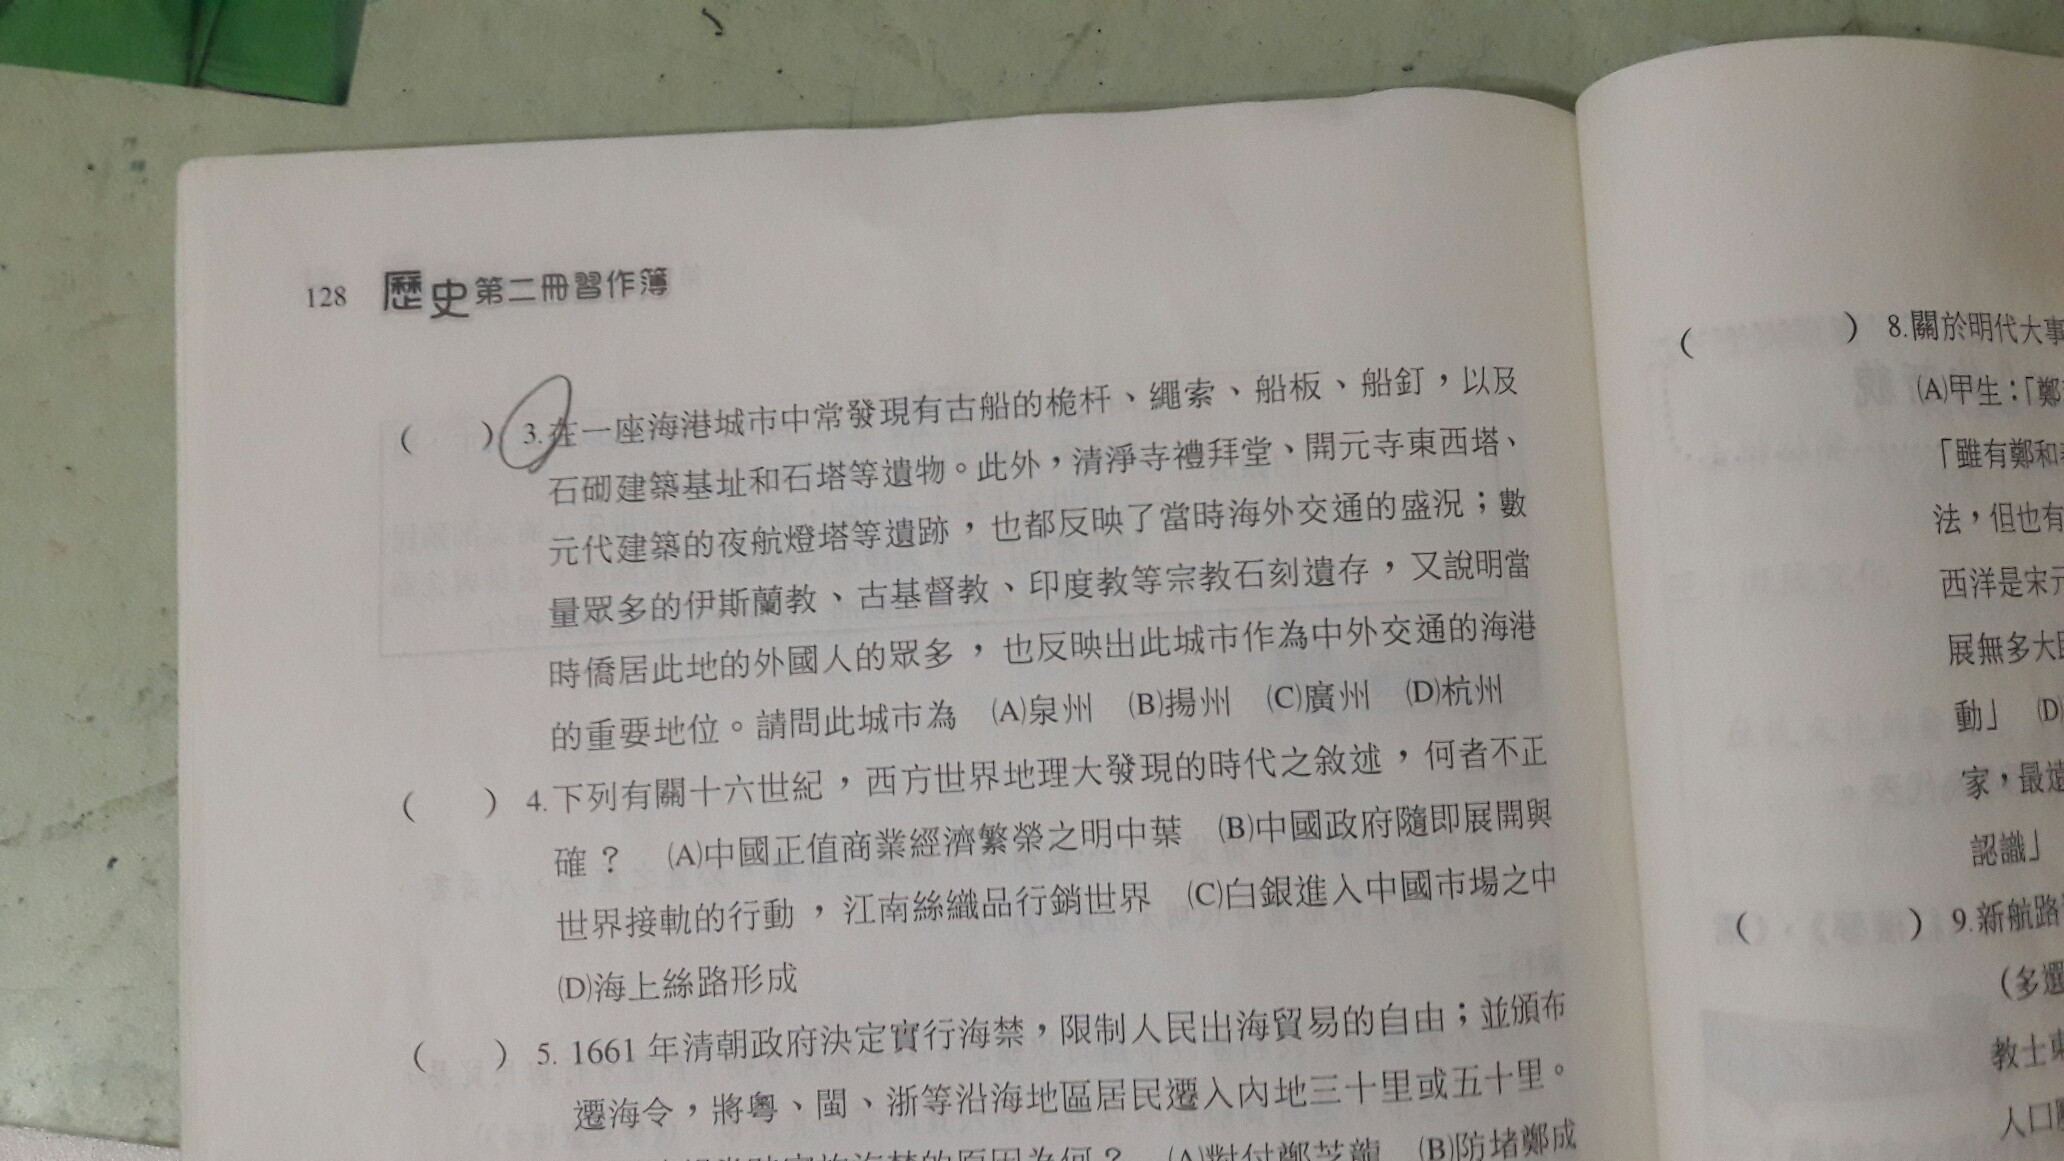 128 歷史第二冊習作簿
( ) 3.在一座海港城市中常發現有古船的桅杆、繩索、船板、船釘，以及
石砌建築基址和石塔等遺物。此外，清淨寺禮拜堂、開元寺東西塔、
元代建築的夜航燈塔等遺跡，也都反映了當時海外交通的盛況；數
量眾多的伊斯蘭教、古基督教、印度教等宗教石刻遺存，又說明當
時僑居此地的外國人的眾多，也反映出此城市作為中外交通的海港
的重要地位。請問此城市為 (A)泉州 (B)揚州 (C)廣州 (D)杭州
( ) 4.下列有關十六世紀，西方世界地理大發現的時代之敘述，何者不正
確？ (A)中國正值商業經濟繁榮之明中葉 (B)中國政府隨即展開與
世界接軌的行動，江南絲織品行銷世界 (C)白銀進入中國市場之中
(D)海上絲路形成
( ) 5. 1661 年清朝政府決定實行海禁，限制人民出海貿易的自由；並頒布
遷海令，將粵、閩、浙等沿海地區居民遷入內地三十里或五十里。
海禁的原因為何？ (A)對付鄭芝龍 (B)防堵鄭成
( ) 8.關於明代大事
(A)甲生：「鄭
「雖有鄭和
法，但也有
西洋是宋元
展無多大
動」 (D)
家，最遠
認識」
( ) 9.新航路
(多選
教士東
人口